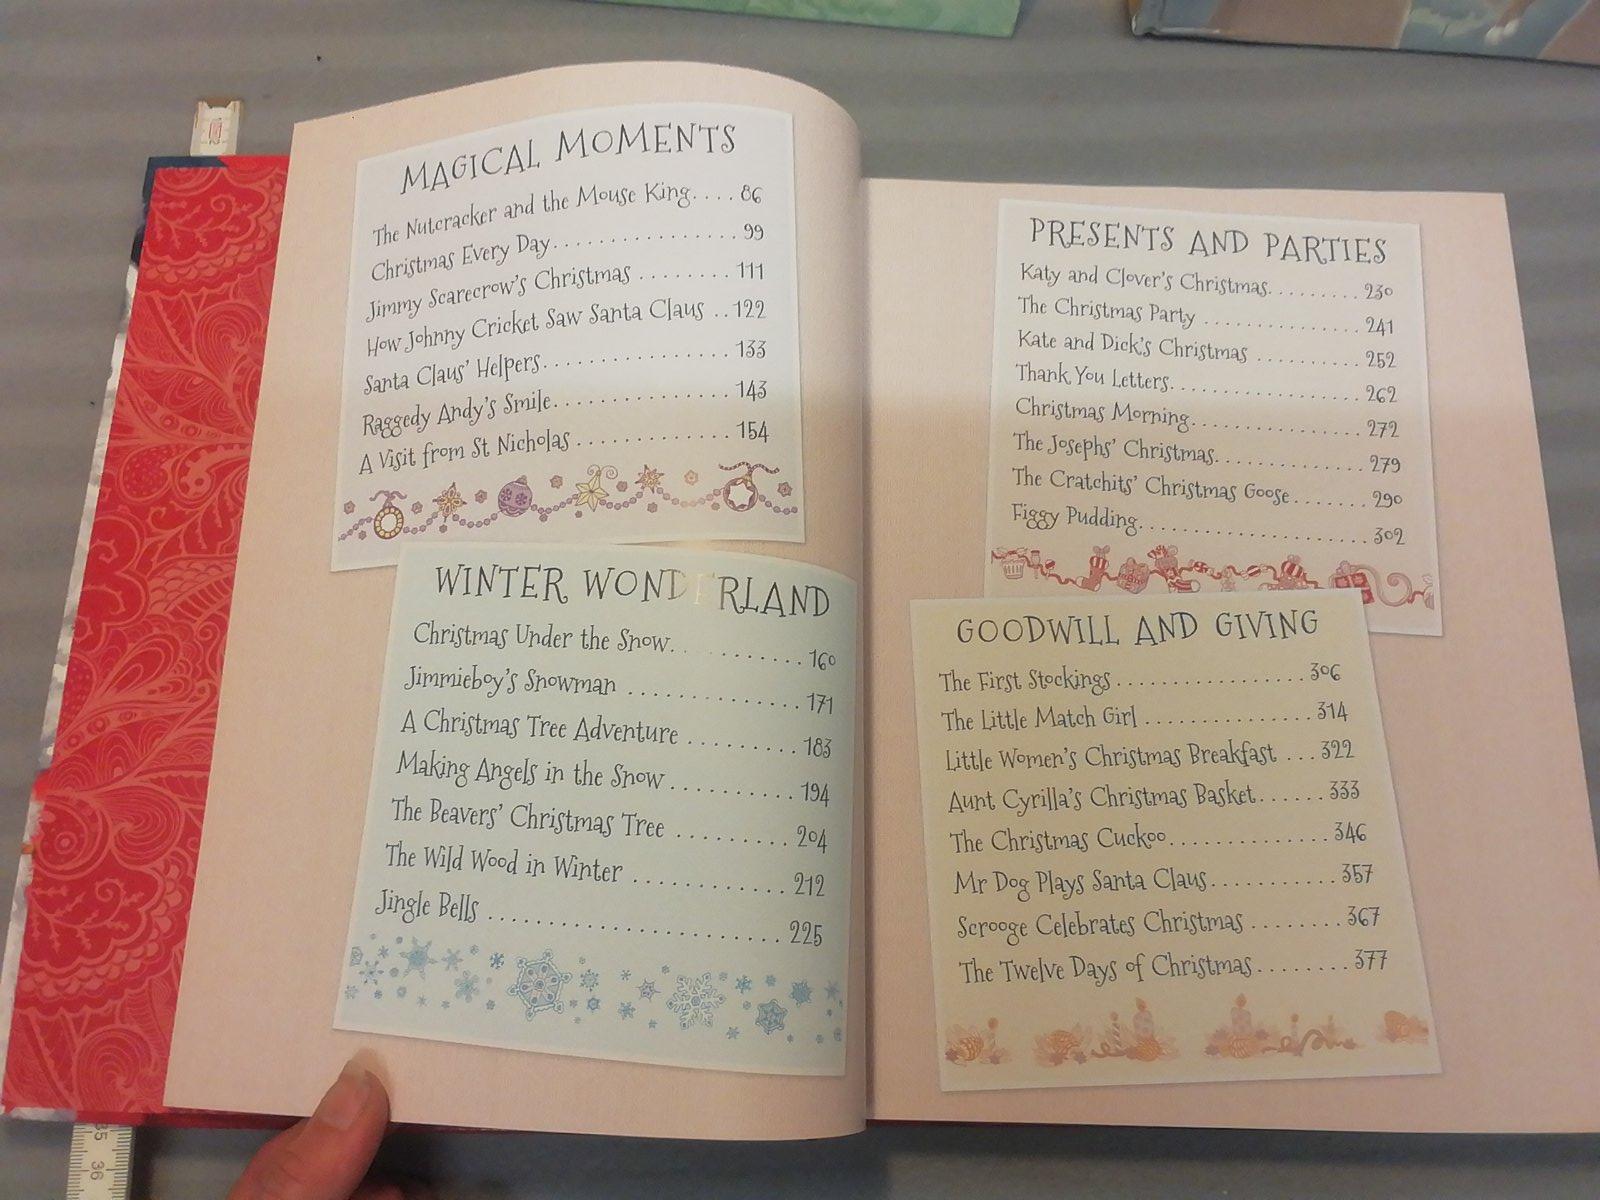 MAGICAL MOMENTS
The Nutcracker and the Mouse King.... 86
Christmas Every Day................ 99
Jimmy Scarecrow's Christmas ........ 111
How Johnny Cricket Saw Santa Claus .. 122
Santa Claus' Helpers................ 133
Raggedy Andy's Smile............... 143
A Visit from St Nicholas ............. 154
WINTER WONDERLAND
Christmas Under the Snow. ........ 160
Jimmieboy's Snowman .............. 171
A Christmas Tree Adventure ......... 183
Making Angels in the Snow .......... 194
The Beavers' Christmas Tree ......... 204
The Wild Wood in Winter ............ 212
Jingle Bells .......................... 225
PRESENTS AND PARTIES
Katy and Clover's Christmas......... 230
The Christmas Party ............... 241
Kate and Dick's Christmas .......... 252
Thank You Letters.................. 262
Christmas Morning................ 272
The Josephs' Christmas.............. 279
The Cratchits' Christmas Goose ....... 290
Figgy Pudding...................... 302
GOODWILL AND GIVING
The First Stockings .................. 306
The Little Match Girl ............... 314
Little Women's Christmas Breakfast ... 322
Aunt Cyrilla's Christmas Basket...... 333
The Christmas Cuckoo............... 346
Mr Dog Plays Santa Claus............ 357
Scrooge Celebrates Christmas ........ 367
The Twelve Days of Christmas ........ 377
35
36